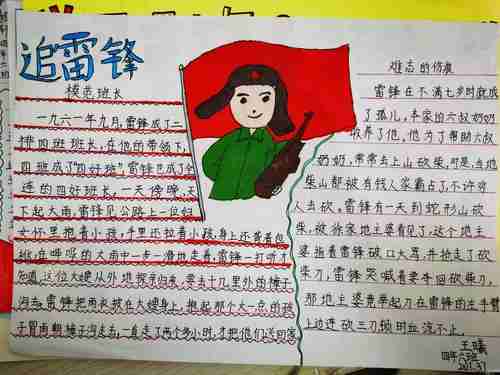 追雷锋
模范班长
一九六一年九月,雷锋成了二
排四班班长,在他的带领下,
四班成了"四好班"雷锋也成了全
连的四好班长,一天傍晚,天
下起大雨,雷锋见公路上一位妇
女怀里抱着小孩,手里还拉着小孩,身上还背着包
袱,在哗哗的大雨中一步一滑地走着,雷锋一打听才
知道,这位大嫂从外地探亲归来,要去十几里外的樟子
沟去,雷锋把雨衣披在大嫂身上,抱起那个大一点的孩
子冒雨朝樟子沟走去,一直走了两个多小时,才把他们送回家
难忘的伤痕
雷锋在不满七岁时就成
了孤儿,本家的六叔奶奶
收养了他,他为了帮助六叔
奶奶,常常去上山砍柴,可是,当地
柴山都被有钱人家霸占了,不许穷
人去砍,雷锋有一天到蛇形山砍
柴,被徐家地主婆看见了,这个地主
婆指着雷锋破口大骂,并抢走了砍
柴刀,雷锋哭喊着要夺回砍柴刀,
那地主婆竟举起刀在雷锋的左手背
上边连砍三刀,顿时血流不止。
四年六班